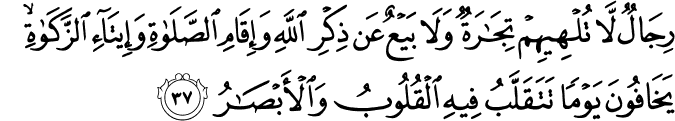 رِجَالٌ لَّا تُلْهِيهِمْ تِجَـٰرَةٌ وَلَا بَيْعٌ عَن ذِكْرِ ٱللَّهِ وَإِقَامِ ٱلصَّلَوٰةِ وَإِيتَآءِ ٱلزَّكَوٰةِ ۙ
يَخَافُونَ يَوْمًا تَتَقَلَّبُ فِيهِ ٱلْقُلُوبُ وَٱلْأَبْصَـٰرُ ٣٧